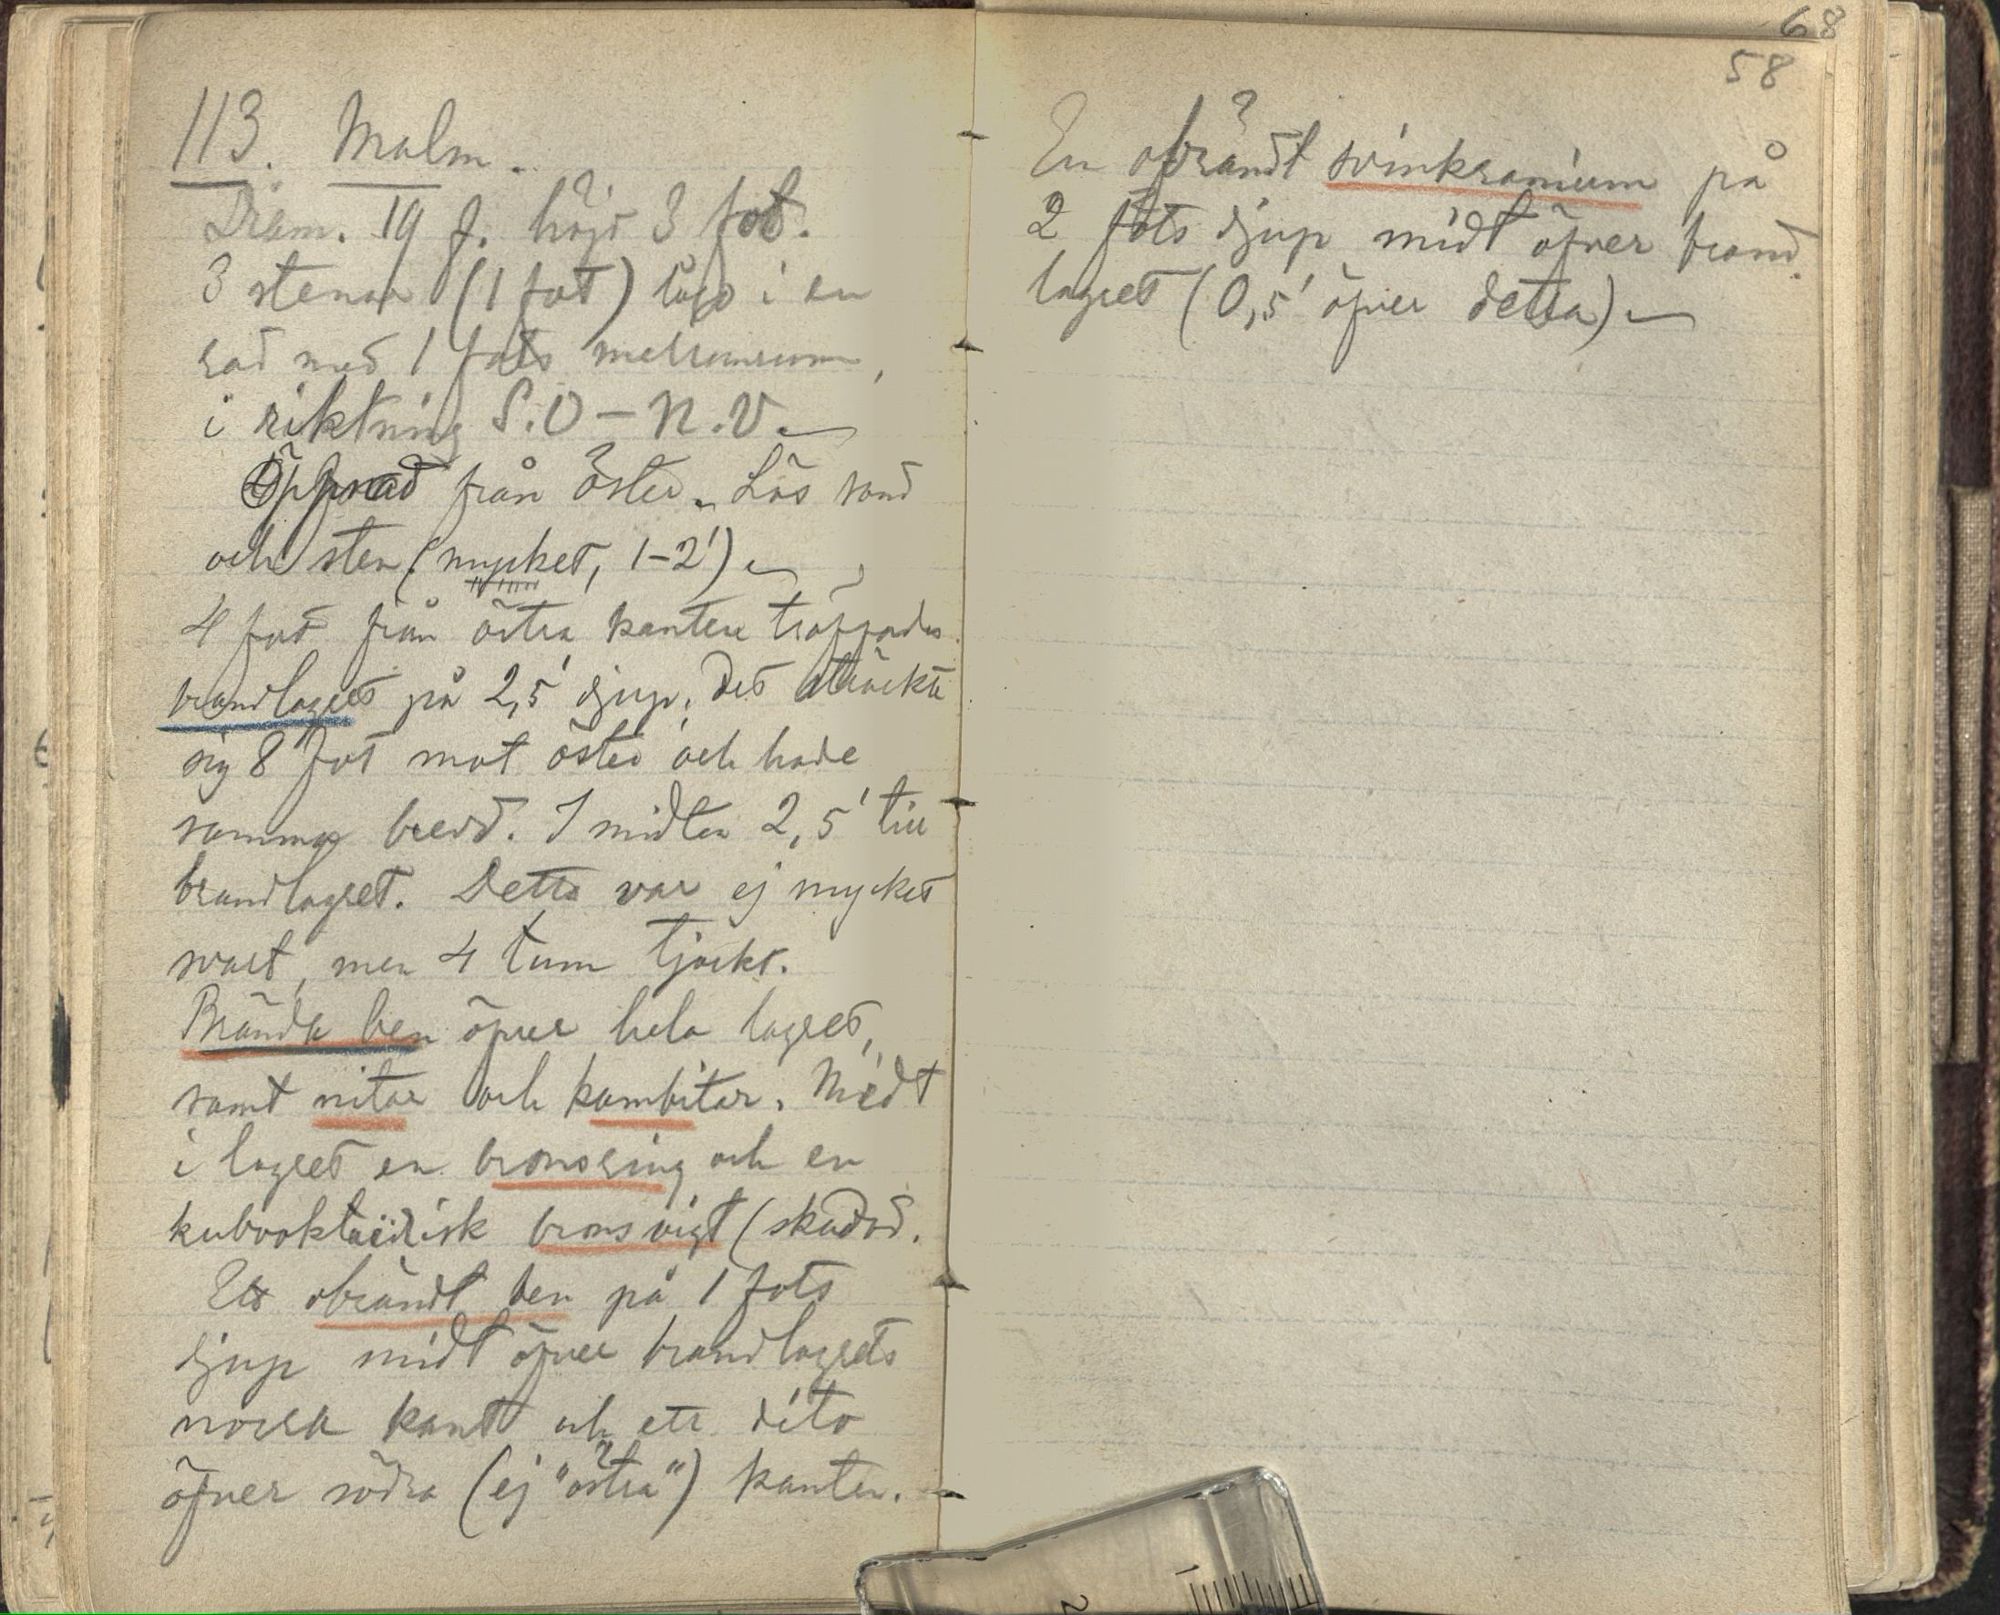 113. Malm.
Diam. 19 f. höjd 3 fot.
3 stenar (1 fot) lågo i en
rad med 1 fots mellanrum,
i riktning S.O – N.V.
Öppnad från öster. Lös sand
och sten (mycket, 1–2')
4 fot från östra kanten träffades
brandlagret på 2,5' djup. Det sträckte
sig 8 fot mot öster och hade
samma bredd. I midten 2,5' till
brandlagret. Detta var ej mycket
svart, men 4 tum tjockt.
Brända ben öfver hela lagret,
samt nitar och kambitar. Midt
i lagret en bronsring och en
kubooktaëdrisk bronsvigt (skadad.
Ett obrändt ben på 1 fots
djup midt öfver brandlagrets
norra kant och ett dito
öfver södra (ej "östra") kanten.
68
58
En obrändt svinkranium på
2 fots djup midt öfver brand
lagret (0,5' öfver detta).
2